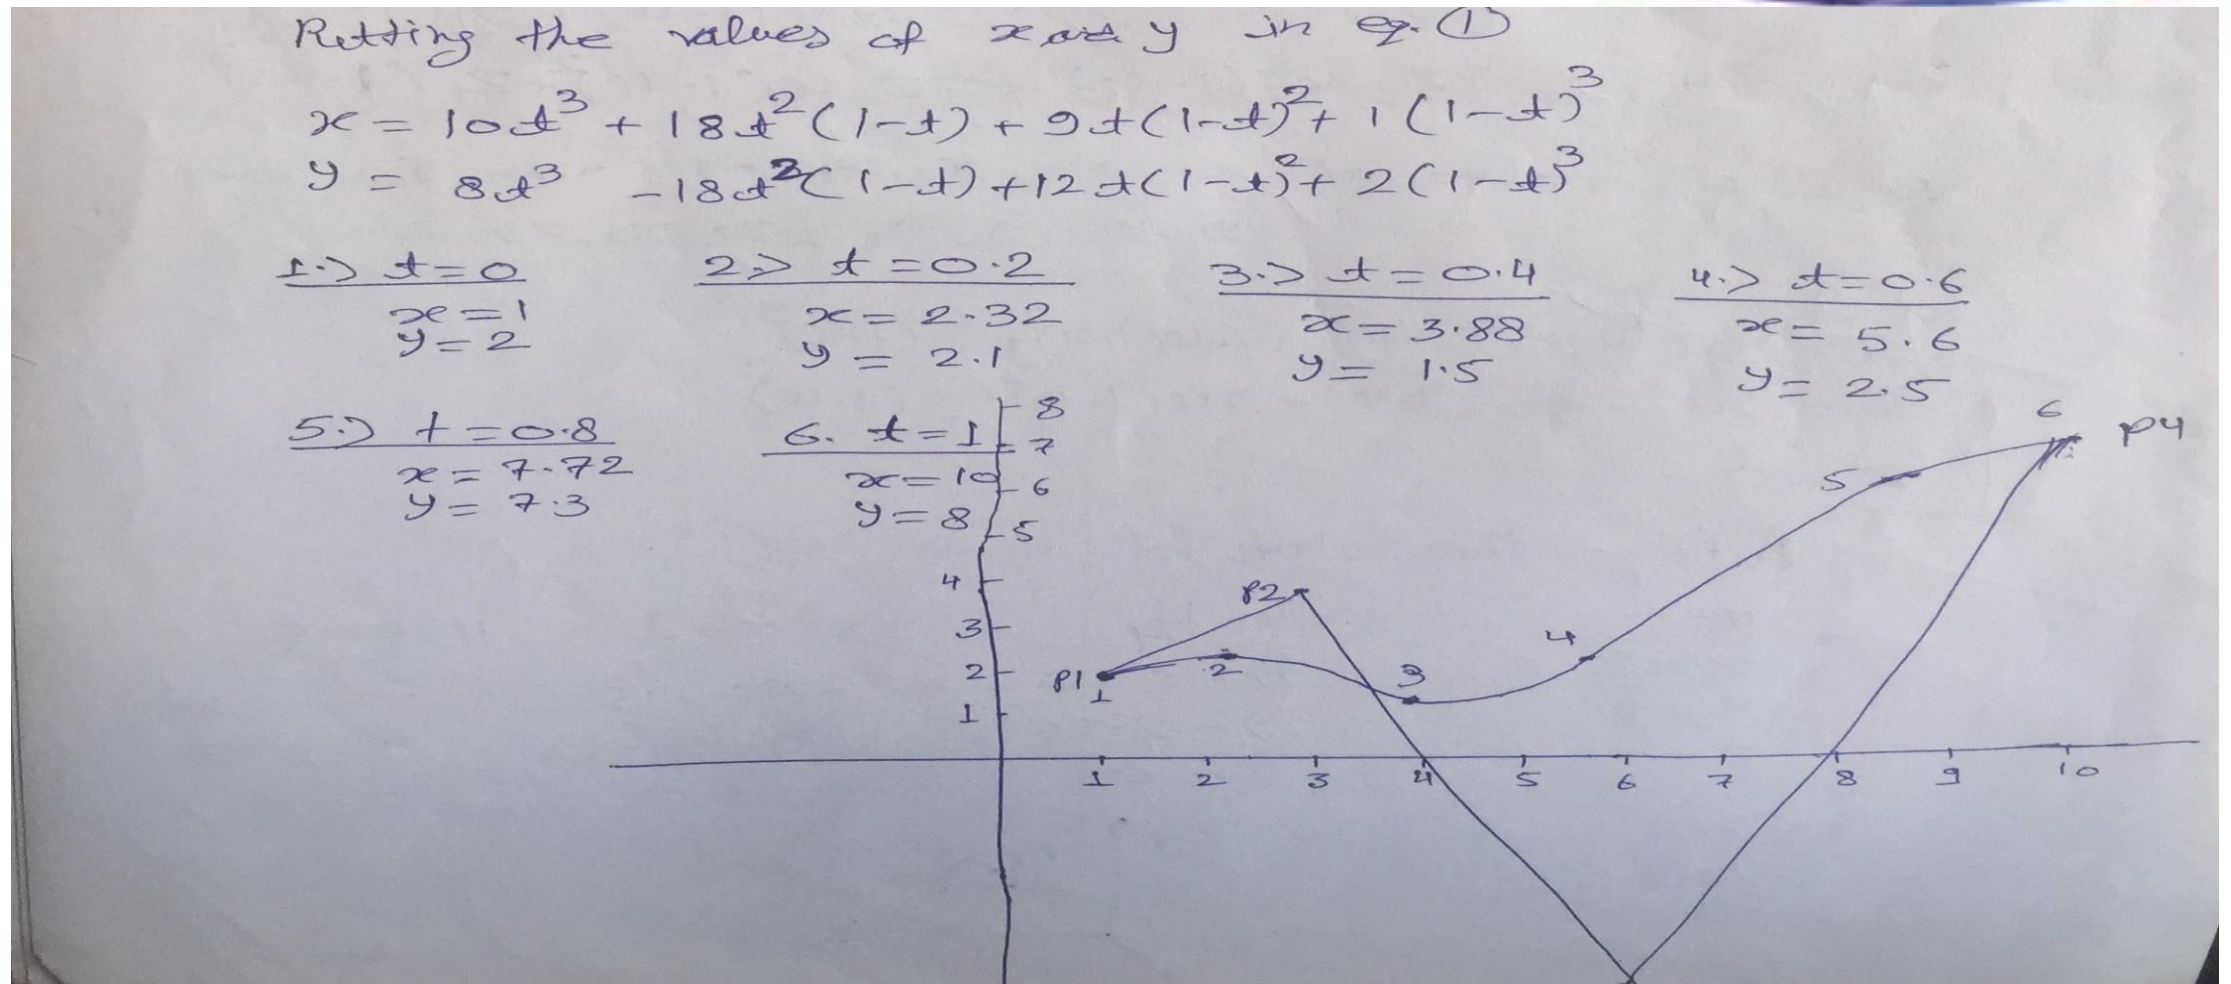 Putting the values of x and y in eq. ①
x = 10t³ + 18t²(1-t) + 9t(1-t)² + 1(1-t)³
y = 8t³ -18t²(1-t) +12t(1-t)² + 2(1-t)³
1.) t=0
x=1
y=2
2.) t=0.2
x= 2.32
y = 2.1
3.) t=0.4
x= 3.88
y= 1.5
4.) t=0.6
x= 5.6
y= 2.5
5.) t=0.8
x= 7.72
y= 7.3
6. t=1
x=10
y=8
8
7
6
5
4
3
2
1
P1
1
P2
2
3
4
5
6
P4
1 2 3 4 5 6 7 8 9 10